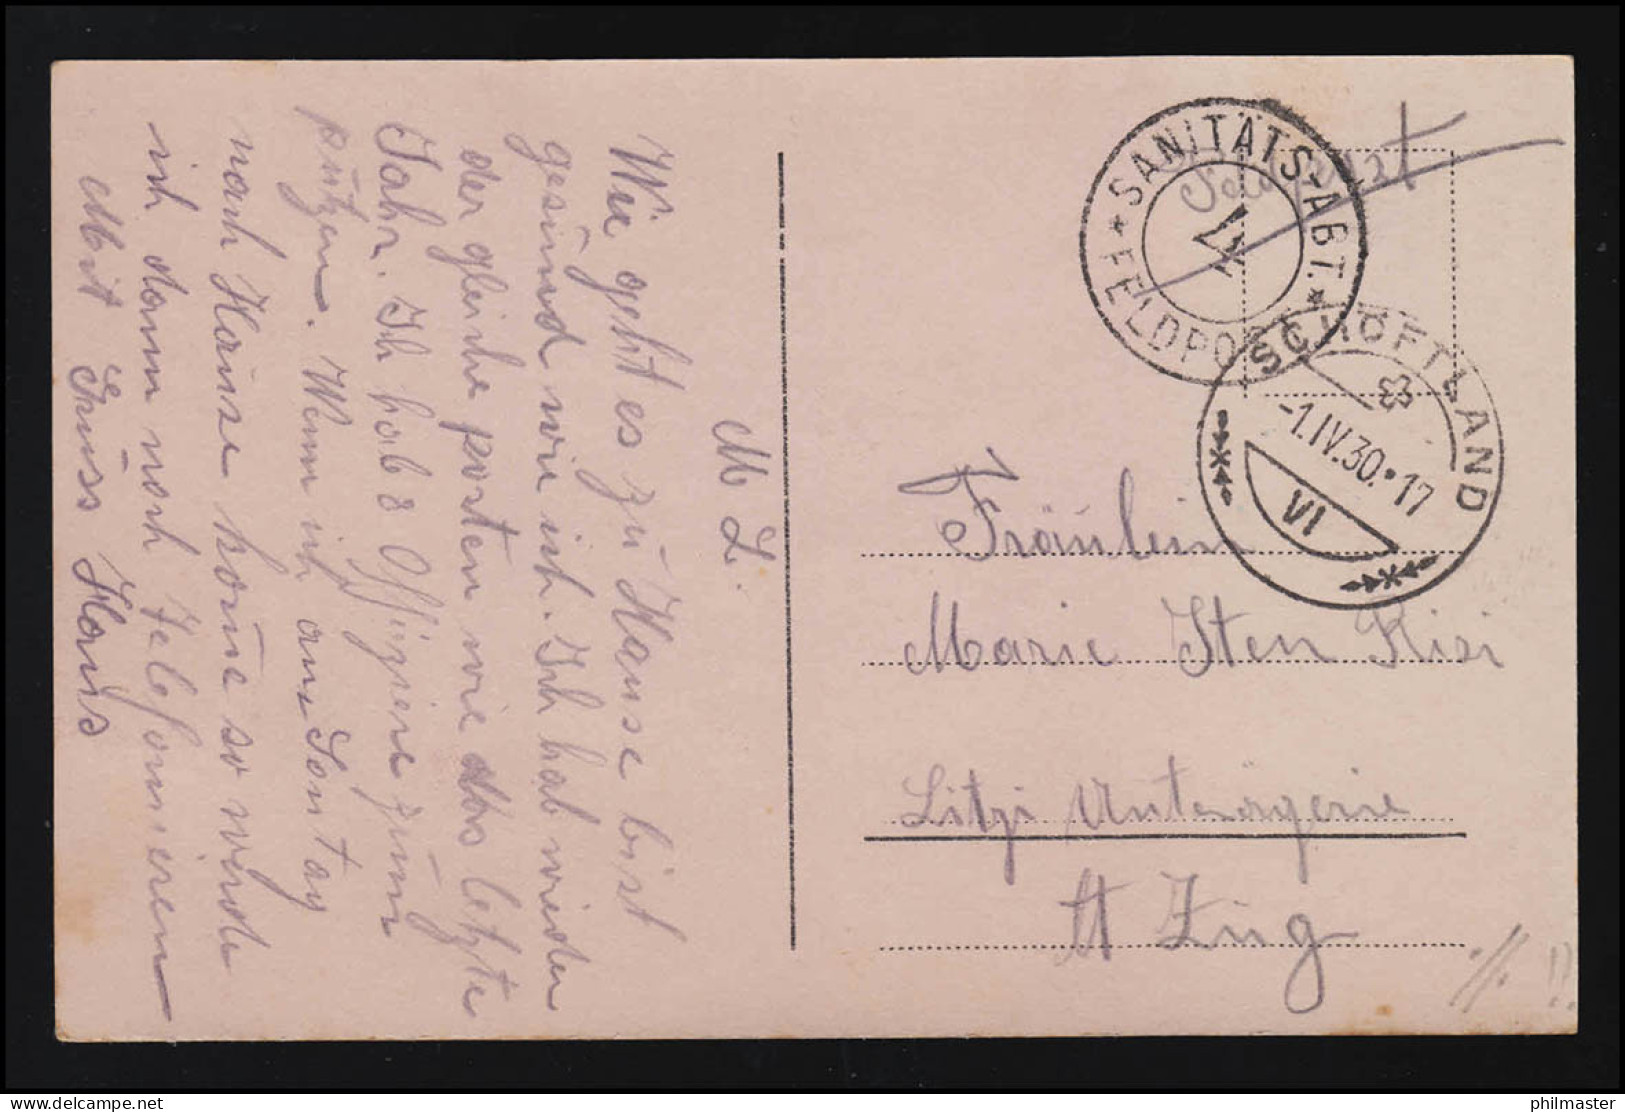 M L.
Wie geht es zu Hause bist
gesund wie ich. Ich hab wieder
der gleiche posten wie das letzte
Jahr. Ich hab 8 Offiziere zum
putzen. Wenn ich am Sontag
nach Hause kome so würde
ich dann noch Telefonieren
Mit Gruss Hans
Feldpost
* SANITÄTS-ABT. *
FELDPOST
4
SCHÖFTLAND
-1.IV.30.•17
VI
Fräulein
Marie Iten
Unterägerie
Kt Zug
philmaster